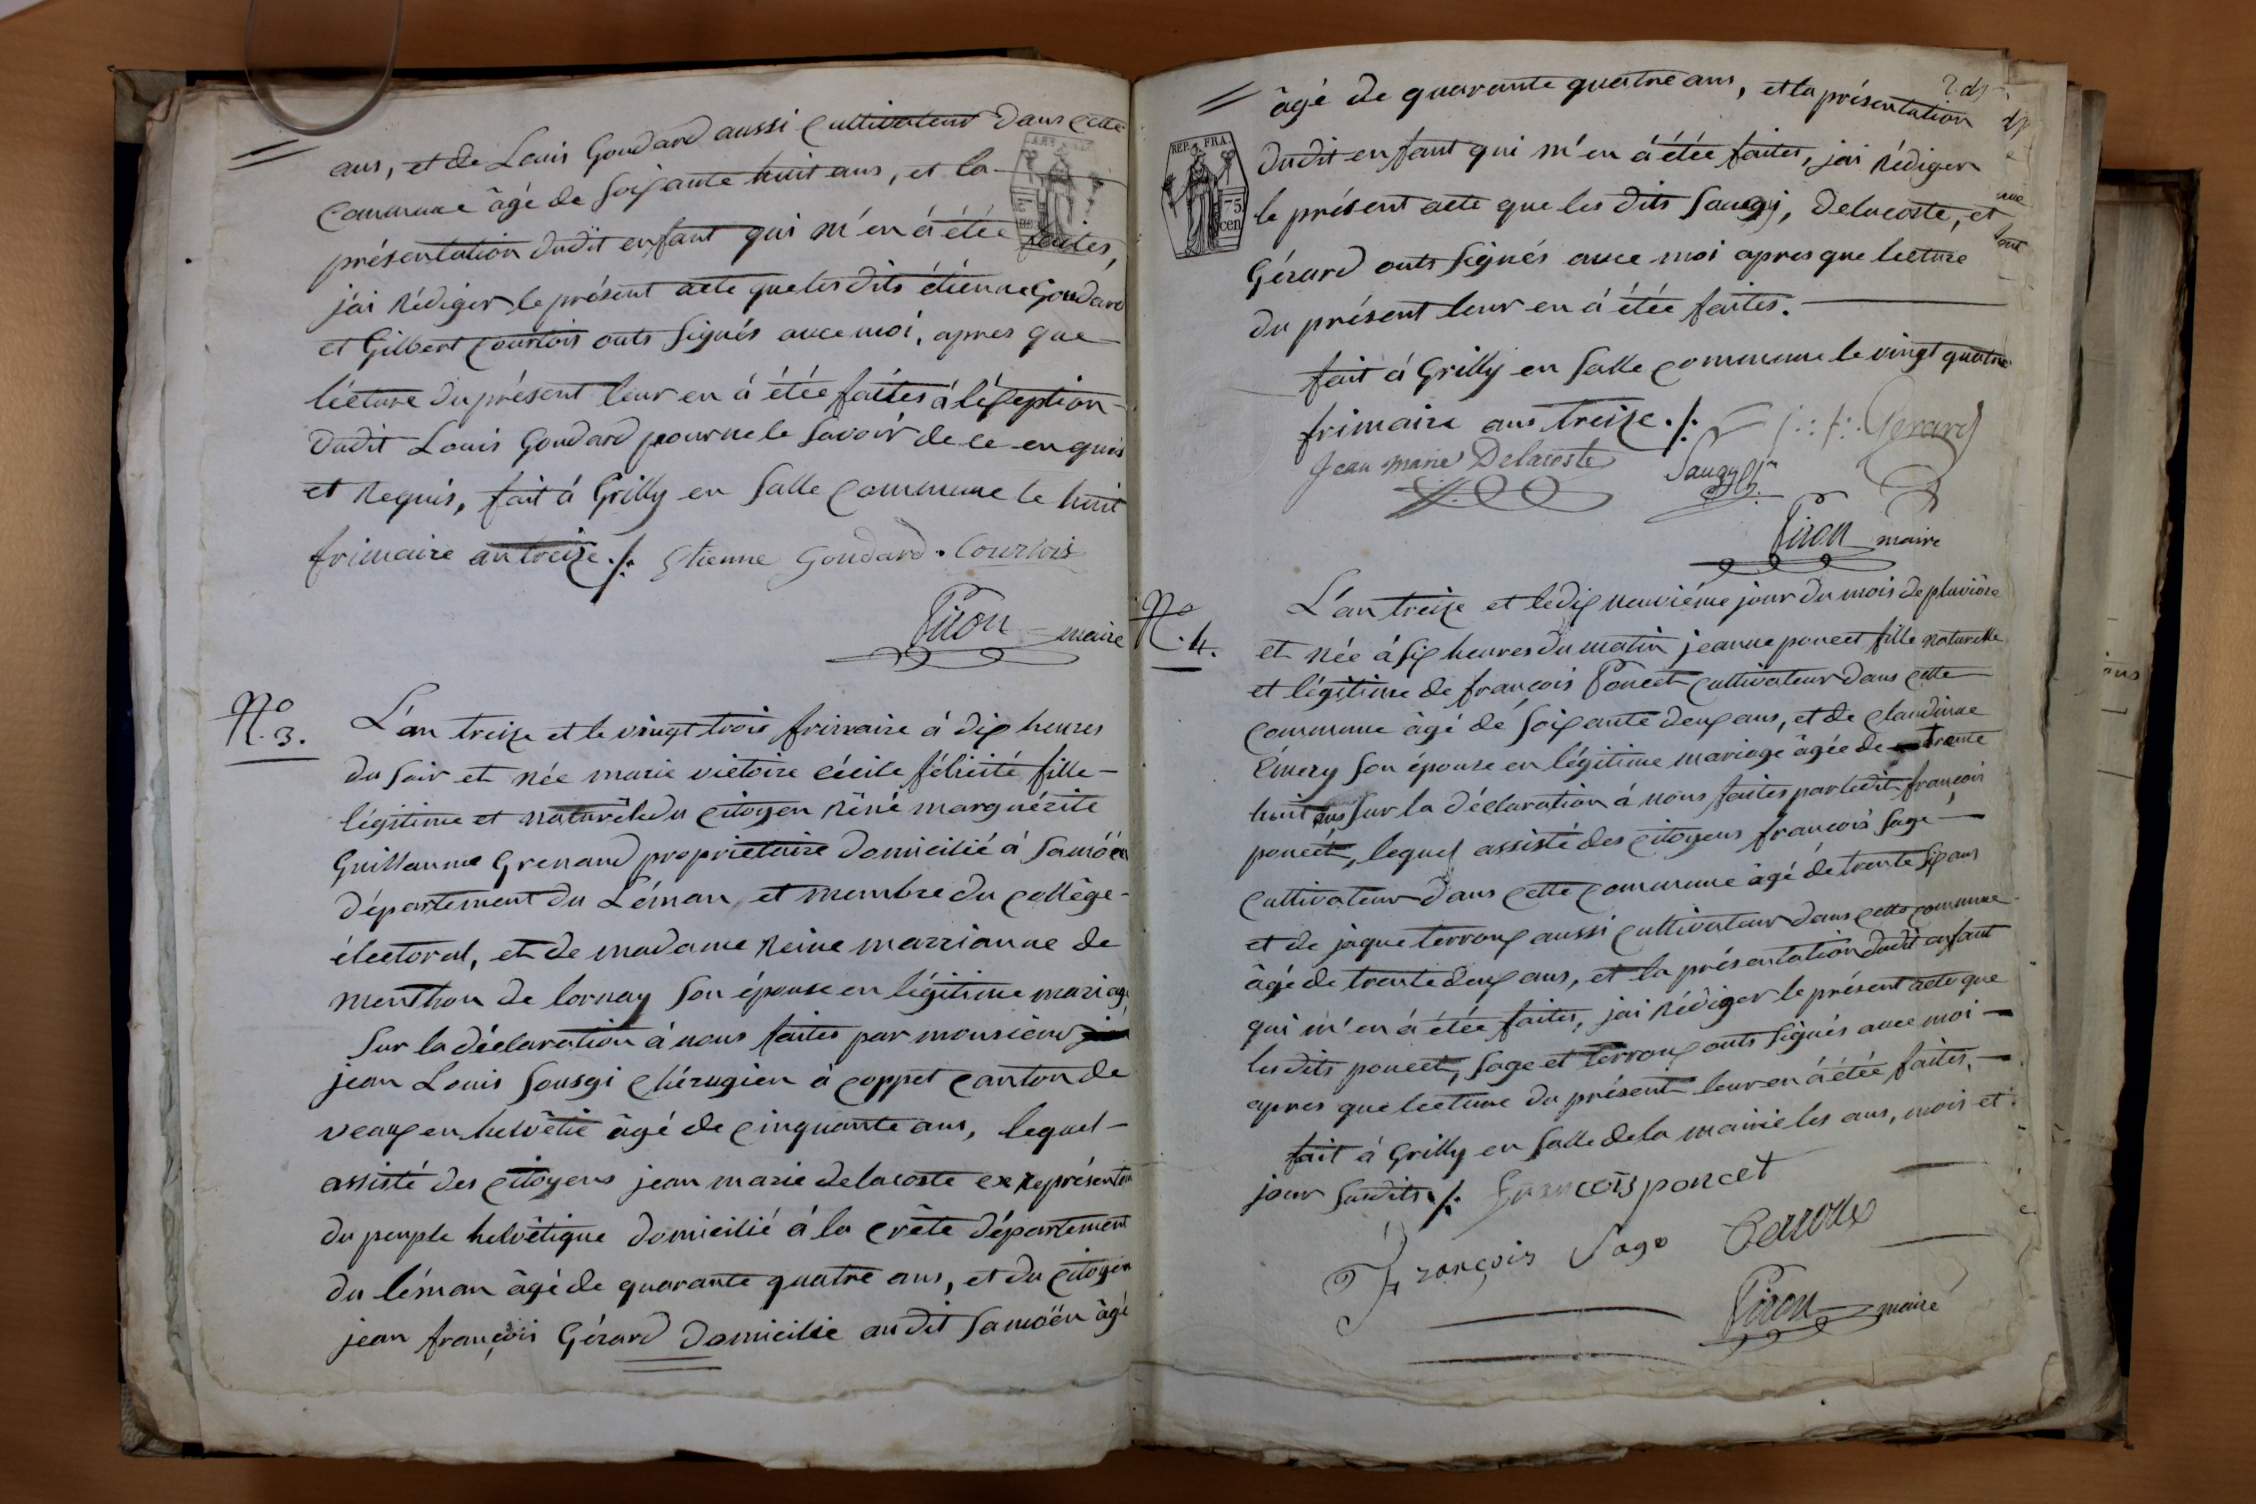 ans, et de Louis Goudard aussi cultivateur dans cette
commune âgé de soixante huit ans, et la
présentation dudit enfant qui m'en á étée faites,
j'ai rédiger le présent acte que les dits étienne Goudard
et Gilbert Courtois onts signés avec moi, apres que
lecture du présent leur en á étée faites á l'éxception
dudit Louis Goudard pour ne le savoir de ce enquis
et requis, fait á Grilly en salle commune le huit
frimaire an treize ./. Etienne Goudard . Courtois
Piron maire
No 3.
L'an treize et le vingt trois frimaire à dix heures
du soir et née marie victoire cécile félicité fille
légitime et naturelle du citoyen réné marguérite
Guillaume Grenaud propriétaire domicilié à Samöen
département du Léman et membre du collège
électoral, et de madame reine marrianne de
menthon de lornay son épouse en légitime mariage
sur la déclaration à nous faites par monsieur
jean Louis Sousgi chérugien à coppet canton de
veaux en helvétie âgé de cinquante ans, lequel
assisté des citoyens jean marie delacoste ex représentan
du peuple helvétique domicilié à la crête département
du léman âgé de quarante quatre ans, et du citoyen
jean françois Gérard domicilie au dit Samoën âgé
âgé de quarante quatre ans, et la présentation
REP. FRA.
75 cen
dudit enfant qui m'en á étée faites, jai rédiger
le présent acte que les dits Saugy, Delacoste, et
Gérard onts signés avec moi apres que lecture
du présent leur en á étée faites.
fait á Grilly en salle commune le vingt quatre
frimaire ans treize ./. Gerard
Jean Marie Delacoste Saugy
Piron maire
No 4.
L'an treize et le dix neuviéme jour du mois de pluviôse
et née á six heures du matin jeanne poncet fille naturelle
et légitime de françois Poncet cultivateur dans cette
commune âgé de soixante deux ans, et de claudine
Émery son épouse en légitime mariage âgée de trente
huit ans sur la déclaration á nous faites par ledit françois
poncet, lequel assisté des citoyens françois sage
cultivateur dans cette commune âgé de trente six ans
et de jaque terroux aussi cultivateur dans cette commune
âgé de trente deux ans, et la présentation dudit enfant
qui m'en á étée faites, jai rédiger le présent acte que
les dits poncet, sage et terroux onts signés avec moi
apres que lecture du présent leur en á étée faites,
fait á Grilly en salle de la mairie les ans, mois et
jour susdits ./. francois poncet
François Sage Terroux
Piron maire